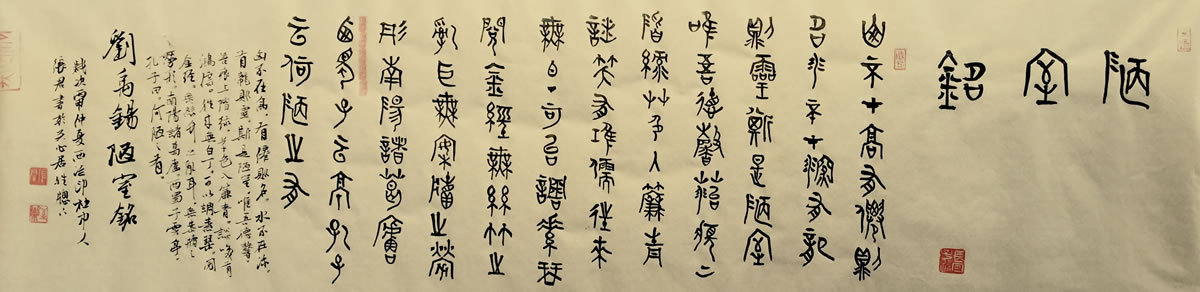 陋室銘
山不在高有僊則
名水不在深有龍
則靈斯是陋室
唯吾德馨苔痕上
階綠艸色入簾青
談笑有鴻儒往來
無白丁可以調素琴
閱金經無絲竹之
亂耳無案牘之勞
形南陽諸葛廬
西蜀子云亭孔子
云何陋之有
山不在高，有僊則名。水不在深，
有龍則靈。斯是陋室，唯吾德馨。
苔痕上階綠，草色入簾青。談笑有
鴻儒，往來無白丁。可以調素琴，閱
金經。無絲竹之亂耳，無案牘之
勞形。南陽諸葛廬，西蜀子雲亭。
孔子曰，何陋之有。
劉禹錫陋室銘
歲次仲夏西泠印社中人
書於心居